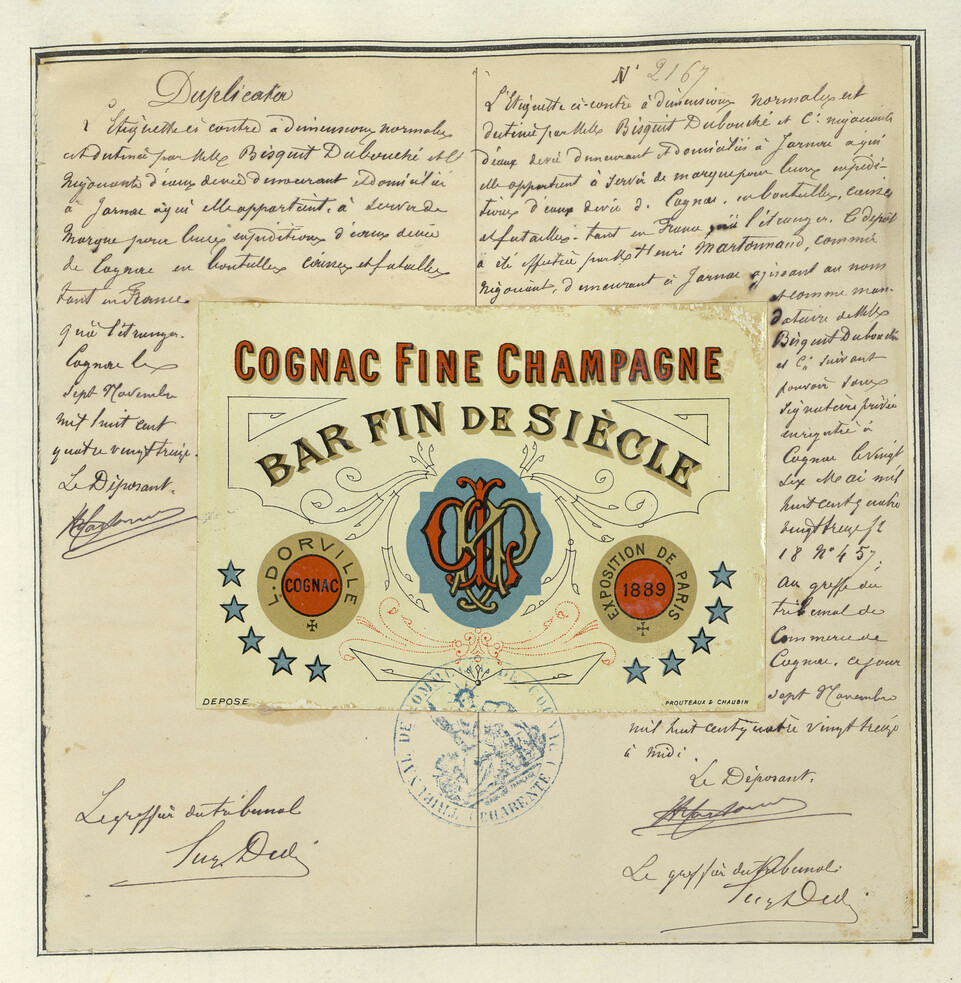 Duplicata
L'Etiquette ci contre à dimensions normales
est destinée par M.M. Bisquit Dubouché et Cie
Négociants d'eaux de vie demeurant et domiciliés
à Jarnac à qui elle appartient, à servir de
Marque pour leurs expéditions d'eaux de vie
de Cognac en bouteilles caisses et futailles
tant en France
qu'à l'étranger.
Cognac le
sept Novembre
mil huit cent
quatre vingt treize.
Le Déposant.
Le greffier du tribunal
N° 2167
L'Etiquette ci-contre à dimensions normales est
destinée par M.M. Bisquit Dubouché et Cie négociants
d'eaux de vie demeurant et domiciliés à Jarnac à qui
elle appartient à servir de marque pour leurs expédi-
tions d'eaux de vie de Cognac, en bouteilles, caisses
et futailles, tant en France qu'à l'étranger. Ce dépôt
à été effectué par Mr Henri Martonnaud, commis
négociant, demeurant à Jarnac agissant au nom
et comme man-
dataire de M.M.
Bisquit Dubouché
et Cie suivant
pouvoir sous
signatures privées
enregistré à
Cognac le vingt
six Mai mil
huit cent quatre
vingt treize fo
18 N° 457,
au greffe du
tribunal de
Commerce de
Cognac, ce jour
sept Novembre
mil huit cent quatre vingt treize
à midi.
Le Déposant.
Le greffier du tribunal.
COGNAC FINE CHAMPAGNE
BAR FIN DE SIÈCLE
L. DORVILLE
COGNAC
EXPOSITION DE PARIS
1889
DEPOSE
PROUTEAUX & CHAUBIN
TRIBUNAL DE COMMERCE DE COGNAC
(CHARENTE)